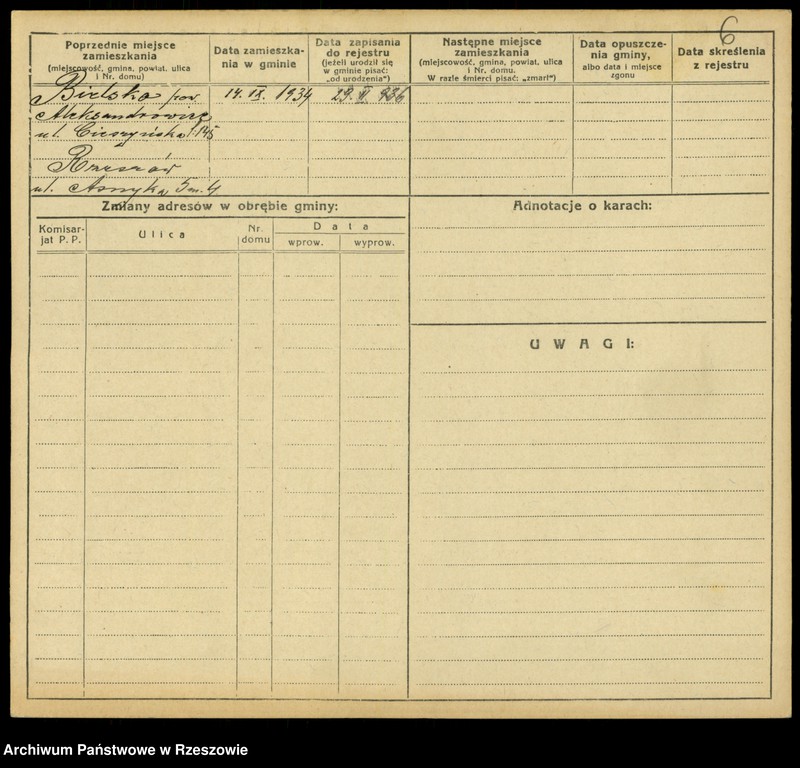 6
Poprzednie miejsce
zamieszkania
(miejscowość, gmina, powiat, ulica
i Nr. domu)
Data zamieszka-
nia w gminie
Data zapisania
do rejestru
(jeżeli urodził się
w gminie pisać:
„od urodzenia")
Następne miejsce
zamieszkania
(miejscowość, gmina, powiat, ulica
i Nr. domu.
W razie śmierci pisać: „zmarł")
Data opuszcze-
nia gminy,
albo data i miejsce
zgonu
Data skreślenia
z rejestru
Bielsko pow 14. IX. 1934 29. 936
Aleksandrowice
ul. Cieszyńska 145
Rzeszów
ul. Asnyka 5 m. 4
Zmiany adresów w obrębie gminy:
Komisar-
jat P. P.
Ulica
Nr.
domu
Data
wprow.
wyprow.
Adnotacje o karach:
UWAGI:
Archiwum Państwowe w Rzeszowie